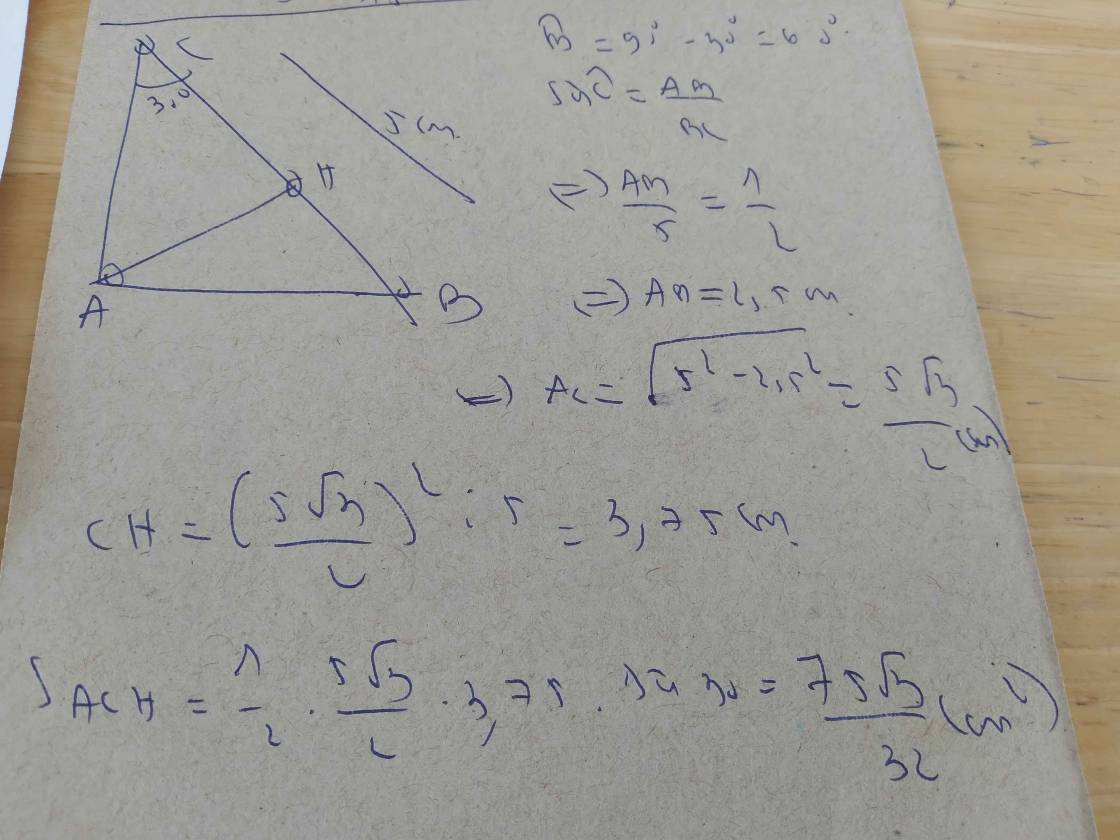 C
30°
H
5 cm
A
B
B = 90° - 30° = 60°.
sin C = AB/BC
=> AB/5 = 1/2
=> AB = 2,5 cm
=> AC = √(5² - 2,5²) = 5√3/2 (cm)
CH = (5√3/2)² : 5 = 3,75 cm
S ACH = 1/2 . 5√3/2 . 3,75 . sin 30 = 75√3/32 (cm²)